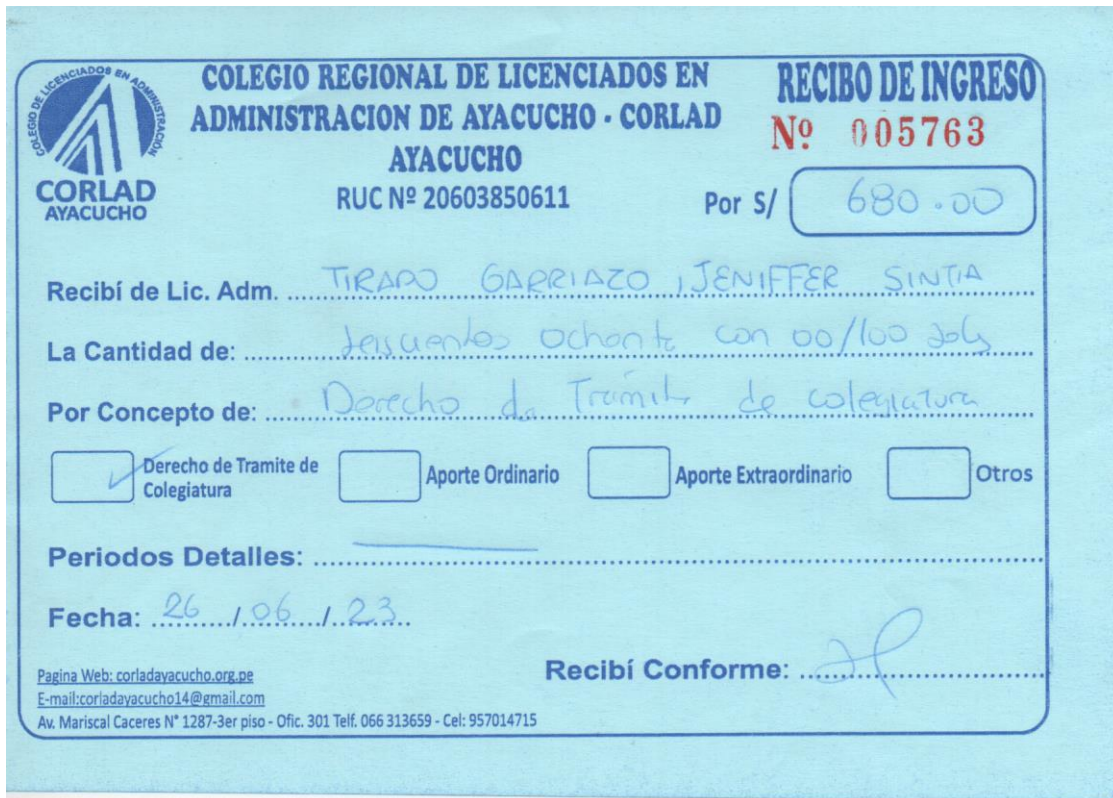 COLEGIO DE LICENCIADOS EN ADMINISTRACIÓN
CORLAD
AYACUCHO
COLEGIO REGIONAL DE LICENCIADOS EN
ADMINISTRACION DE AYACUCHO - CORLAD
AYACUCHO
RUC Nº 20603850611
RECIBO DE INGRESO
Nº 005763
Por S/ 680.00
Recibí de Lic. Adm. TIRADO GARRIAZO, JENIFFER SINTIA
La Cantidad de: seiscientos ochenta con 00/100 soles
Por Concepto de: Derecho de Tramite de colegiatura
Derecho de Tramite de Colegiatura
Aporte Ordinario
Aporte Extraordinario
Otros
Periodos Detalles:
Fecha: 26/06/23
Recibí Conforme:
Pagina Web: corladayacucho.org.pe
E-mail:corladayacucho14@gmail.com
Av. Mariscal Caceres N° 1287-3er piso - Ofic. 301 Telf. 066 313659 - Cel: 957014715